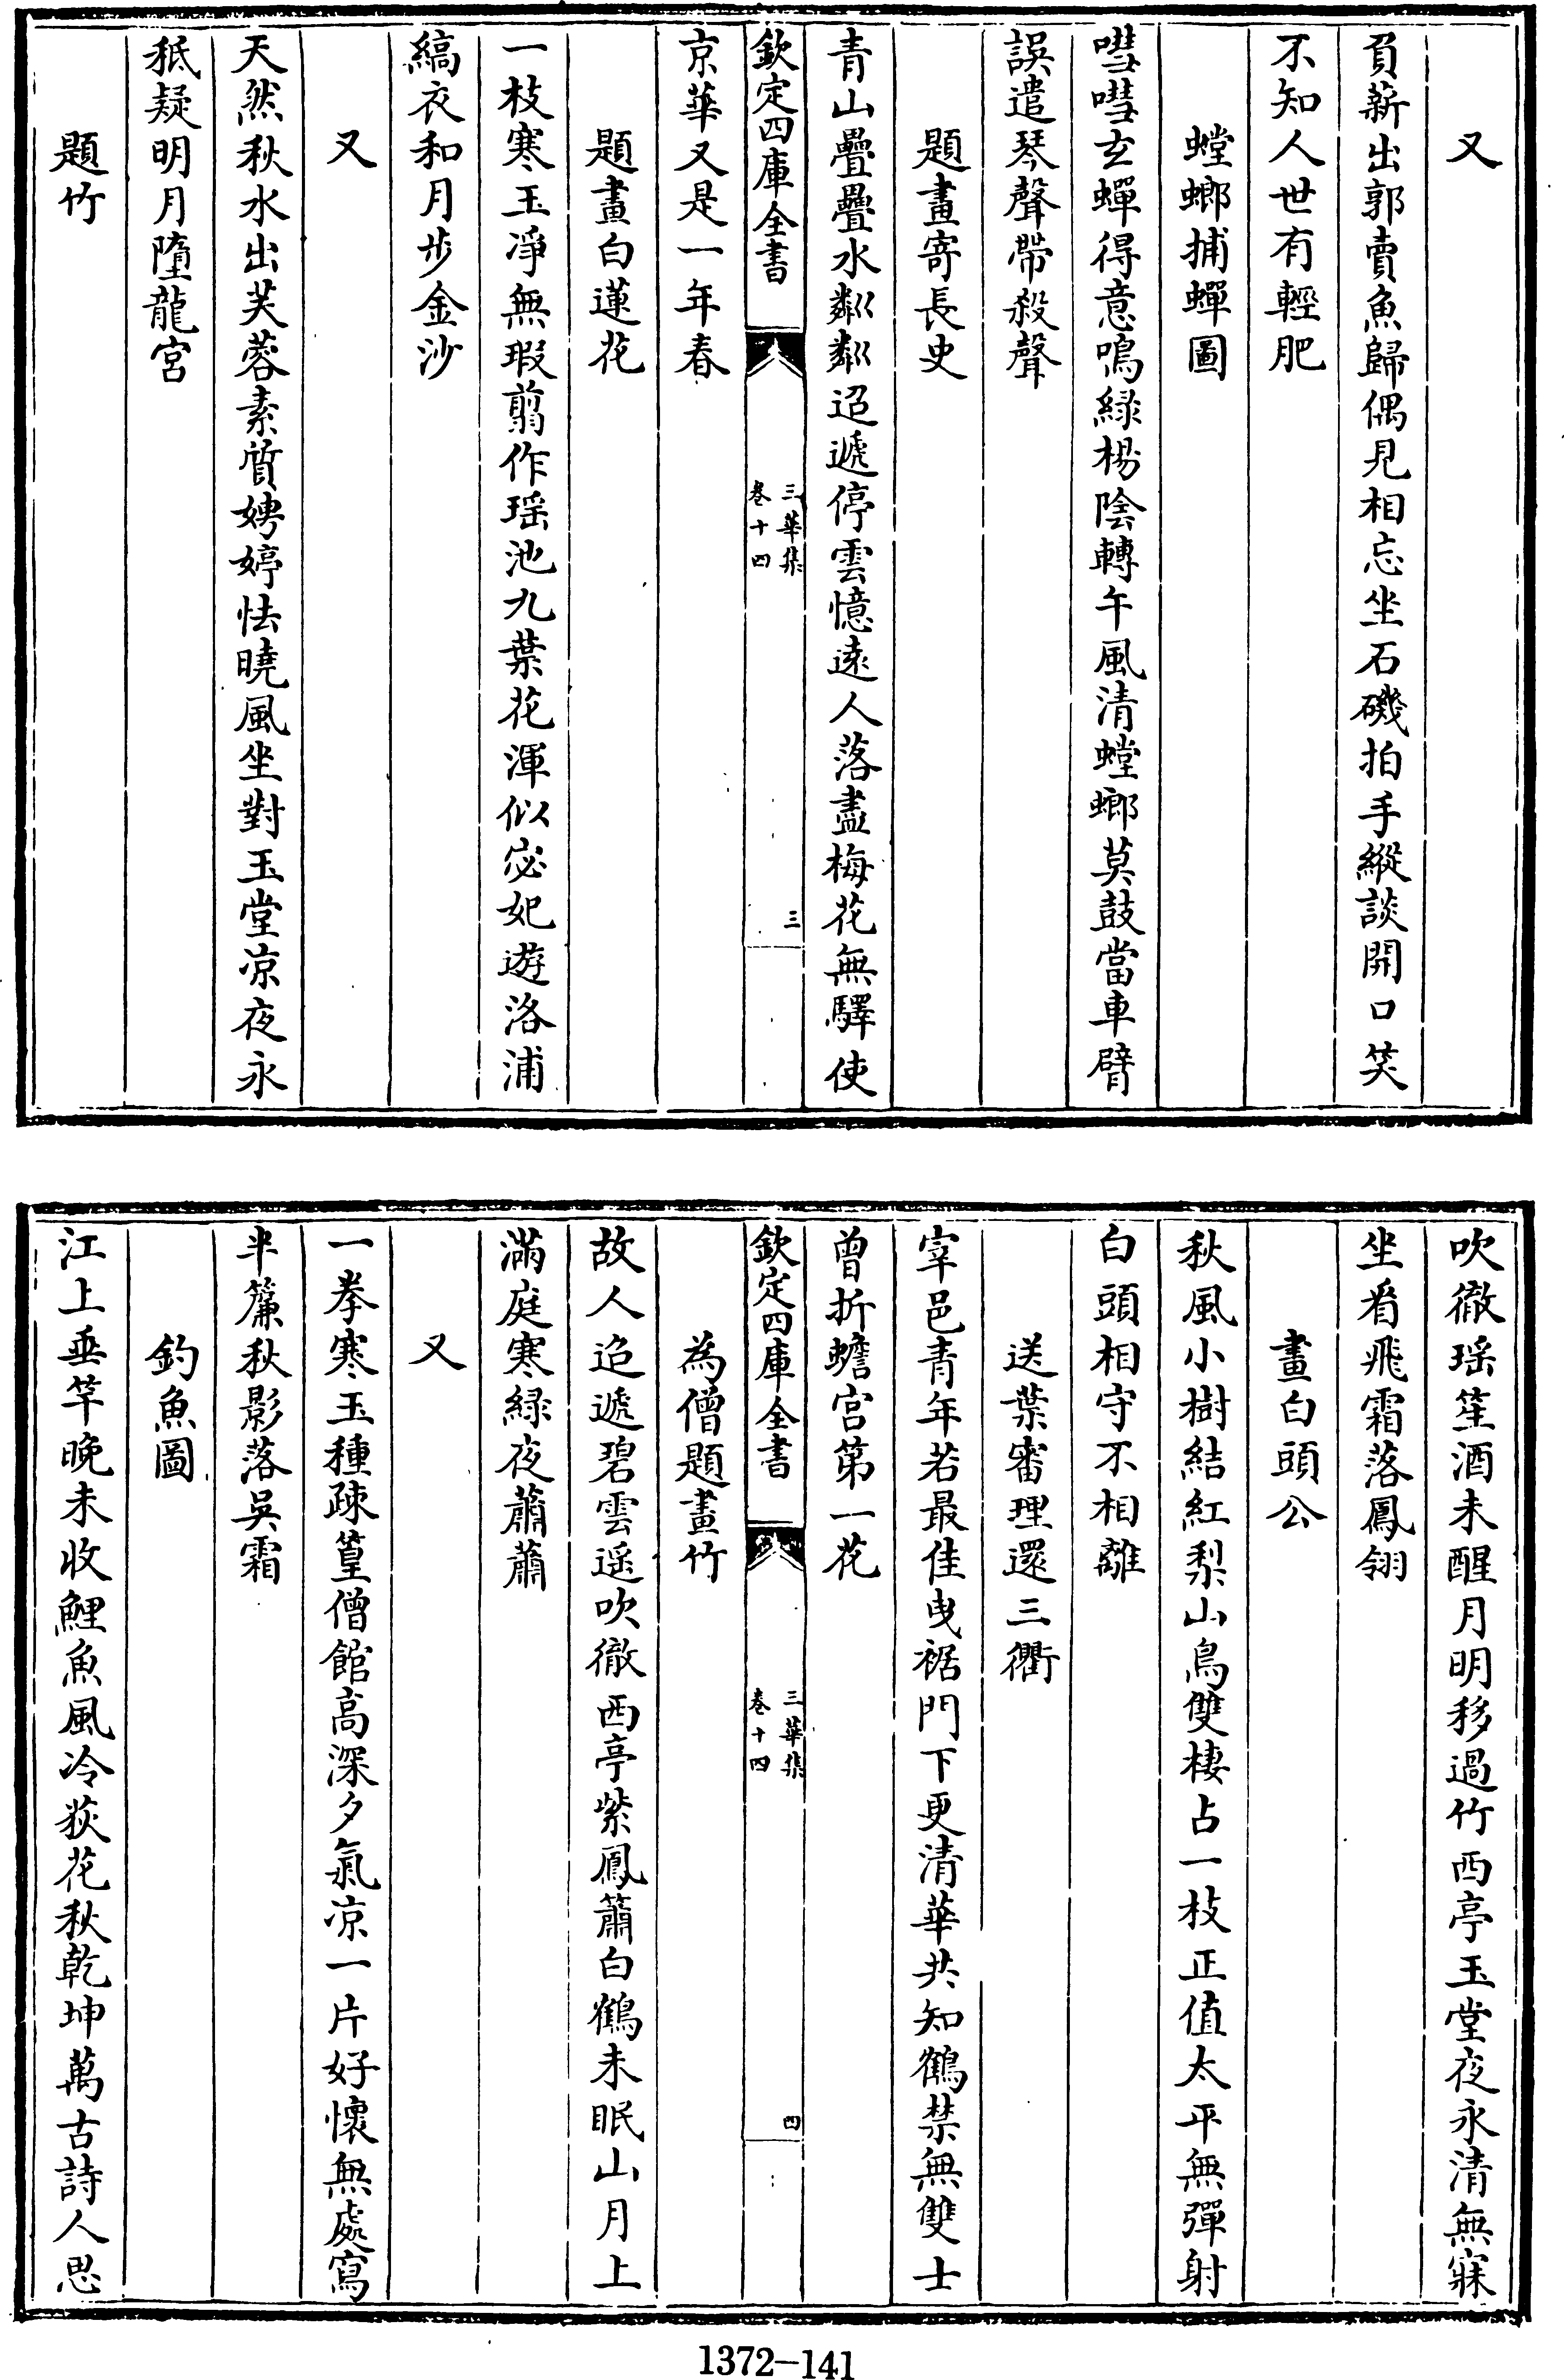 又
負薪出郭賣魚歸偶見相忘坐石磯拍手縱談開口笑
不知人世有輕肥
螳螂捕蟬圖
嘒嘒玄蟬得意鳴綠楊陰轉午風清螳螂莫鼓當車臂
誤遣琴聲帶殺聲
題畫寄長史
青山疊疊水粼粼迢遞停雲憶遠人落盡梅花無驛使
欽定四庫全書
三華集
卷十四
三
京華又是一年春
題畫白蓮花
一枝寒玉凈無瑕翦作瑶池九葉花渾似宓妃遊洛浦
縞衣和月步金沙
又
天然秋水出芙蓉素質娉婷怯曉風坐對玉堂凉夜永
秪疑明月墮龍宮
題竹
吹徹瑶笙酒未醒月明移過竹西亭玉堂夜永清無寐
坐看飛霜落鳳翎
畫白頭公
秋風小樹結紅梨山鳥雙棲占一枝正值太平無彈射
白頭相守不相離
送葉審理還三衢
宰邑青年若最佳曳裾門下更清華共知鶴禁無雙士
曾折蟾宮第一花
欽定四庫全書
三華集
卷十四
四
為僧題畫竹
故人迢遞碧雲遥吹徹西亭紫鳳簫白鶴未眠山月上
滿庭寒綠夜蕭蕭
又
一拳寒玉種疎篁僧館高深夕氣凉一片好懷無處寫
半簾秋影落吳霜
釣魚圖
江上垂竿晚未收鯉魚風冷荻花秋乾坤萬古詩人思
1372-141